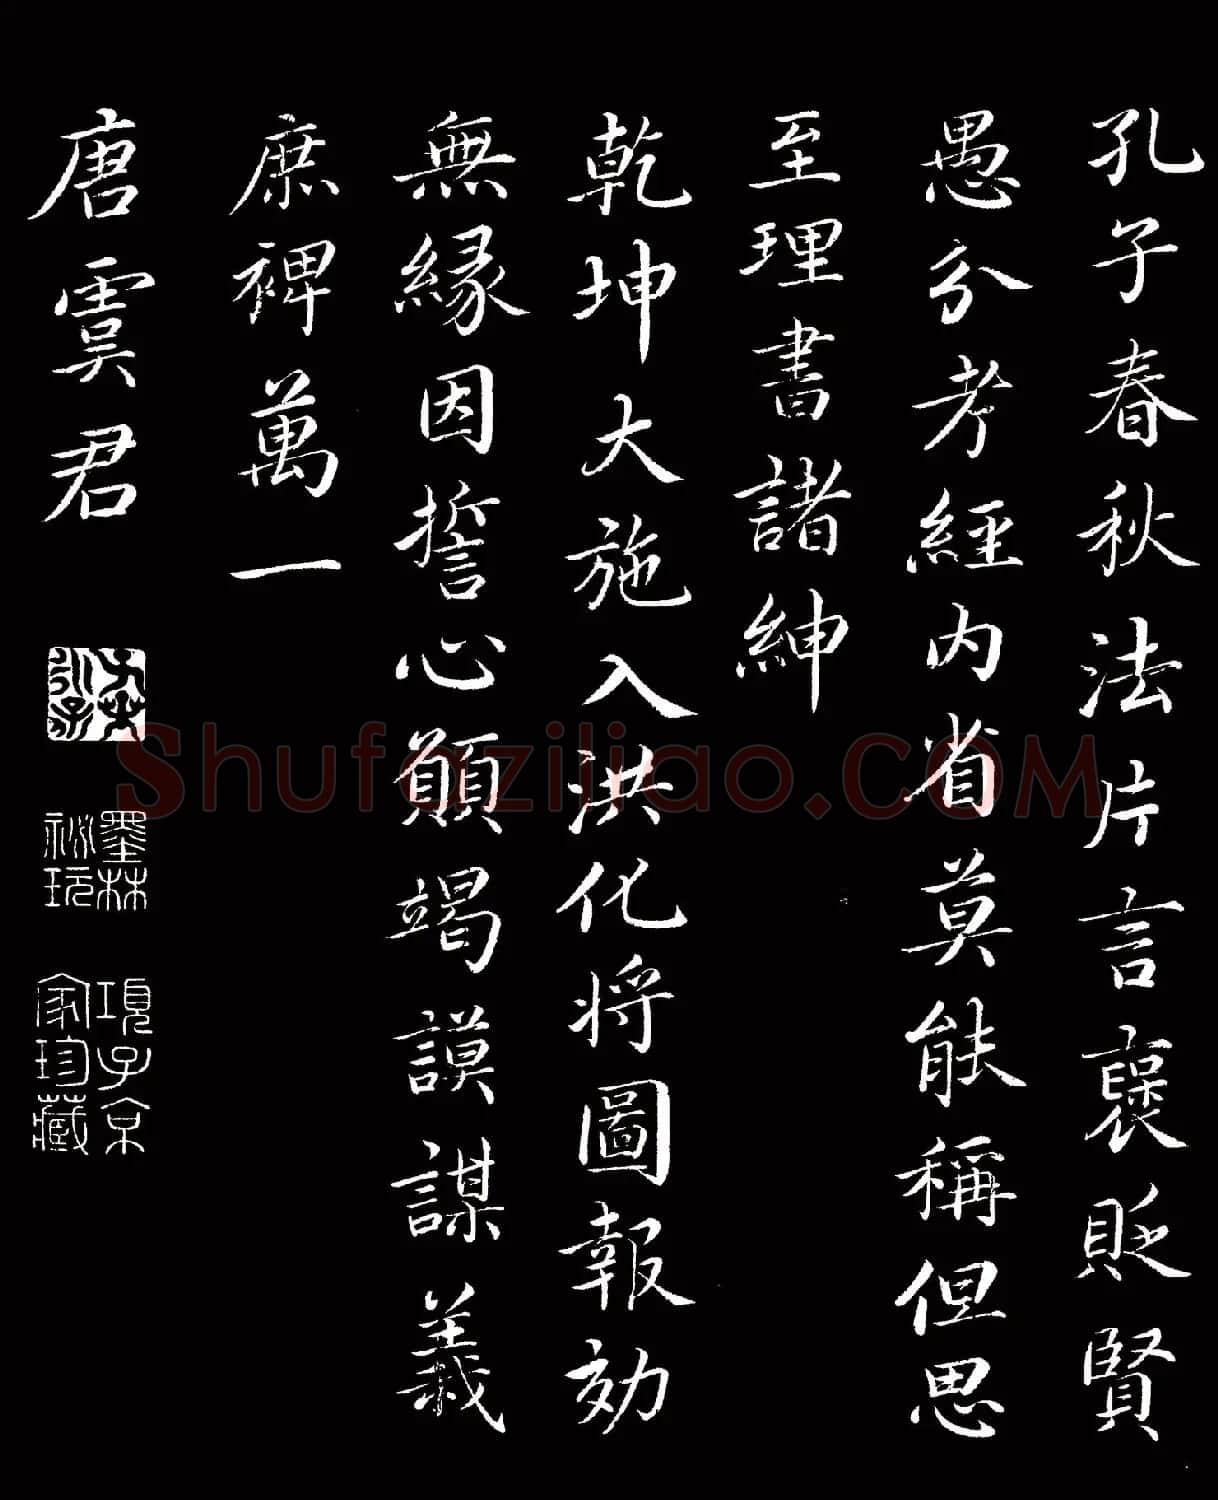 孔子春秋法片言褒貶賢
愚分考經內省莫能稱但思
至理書諸紳
乾坤大施入洪化將圖報効
無緣因誓心願竭謨謀義
庶裨萬一
唐虞君
墨林
祕玩
項子京
家珍藏
Shufaziliao.COM